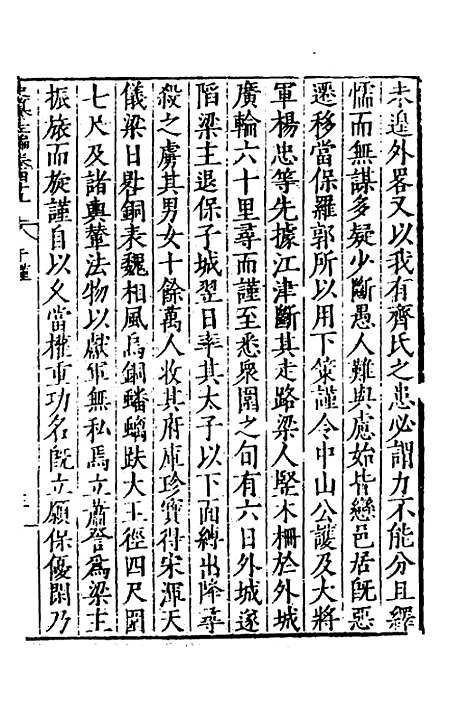 未遑外畧又以我有齊氏之患必謂力不能分且繹
懦而無謀多疑少斷愚人難與慮始皆戀邑居旣惡
遷移當保羅郭所以用下策謹令中山公護及大將
軍楊忠等先據江津斷其走路梁人竪木柵於外城
廣輪六十里尋而謹至悉衆圍之旬有六日外城遂
陷梁主退保子城翌日率其太子以下面縛出降尋
殺之虜其男女十餘萬人收其府庫珍寶得宋渾天
儀梁日晷銅表魏相風烏銅蟠螭趺大玉徑四尺圍
七尺及諸輿輦法物以獻軍無私焉立蕭詧爲梁主
振旅而旋謹自以久當權重功名旣立願保優閑乃
于謹